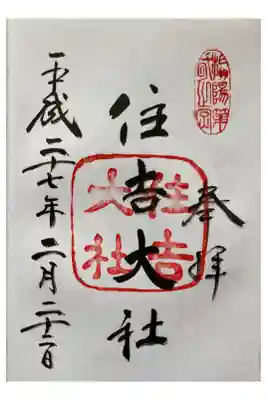 奉拝
住吉大社
住吉大社
平成二十七年二月二十二日